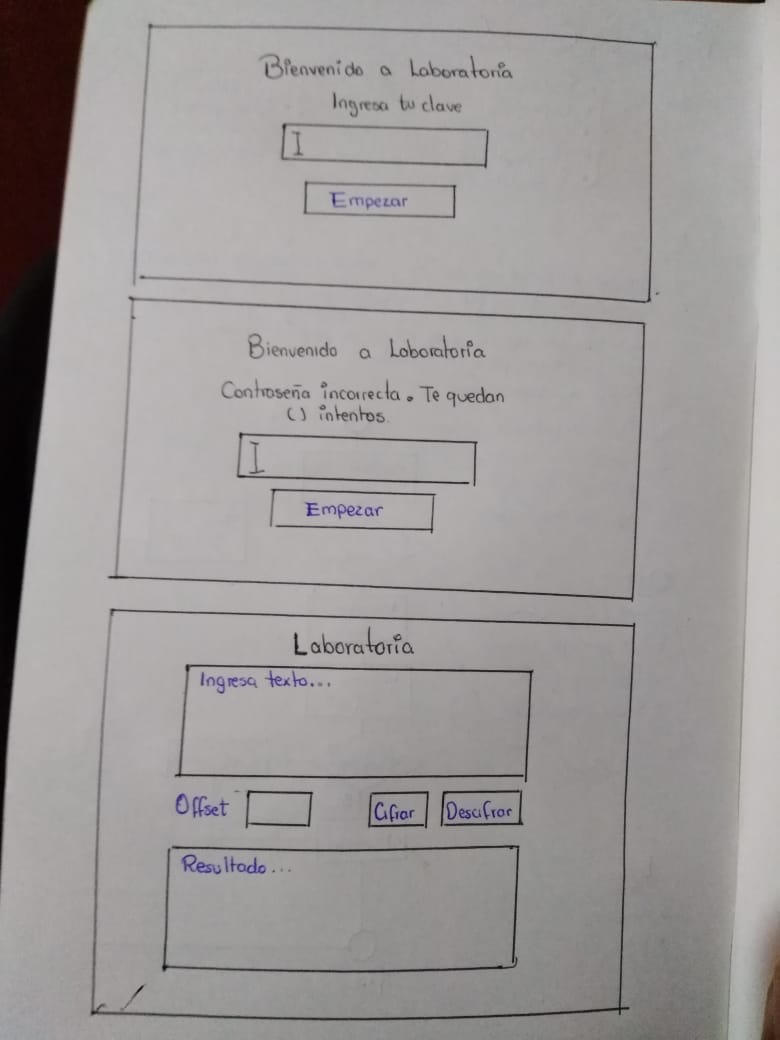 Bienvenido a Laboratoria
Ingresa tu clave
Empezar
Bienvenido a Laboratoria
Contraseña incorrecta. Te quedan
( ) intentos.
Empezar
Laboratoria
Ingresa texto...
Offset Cifrar Descifrar
Resultado...